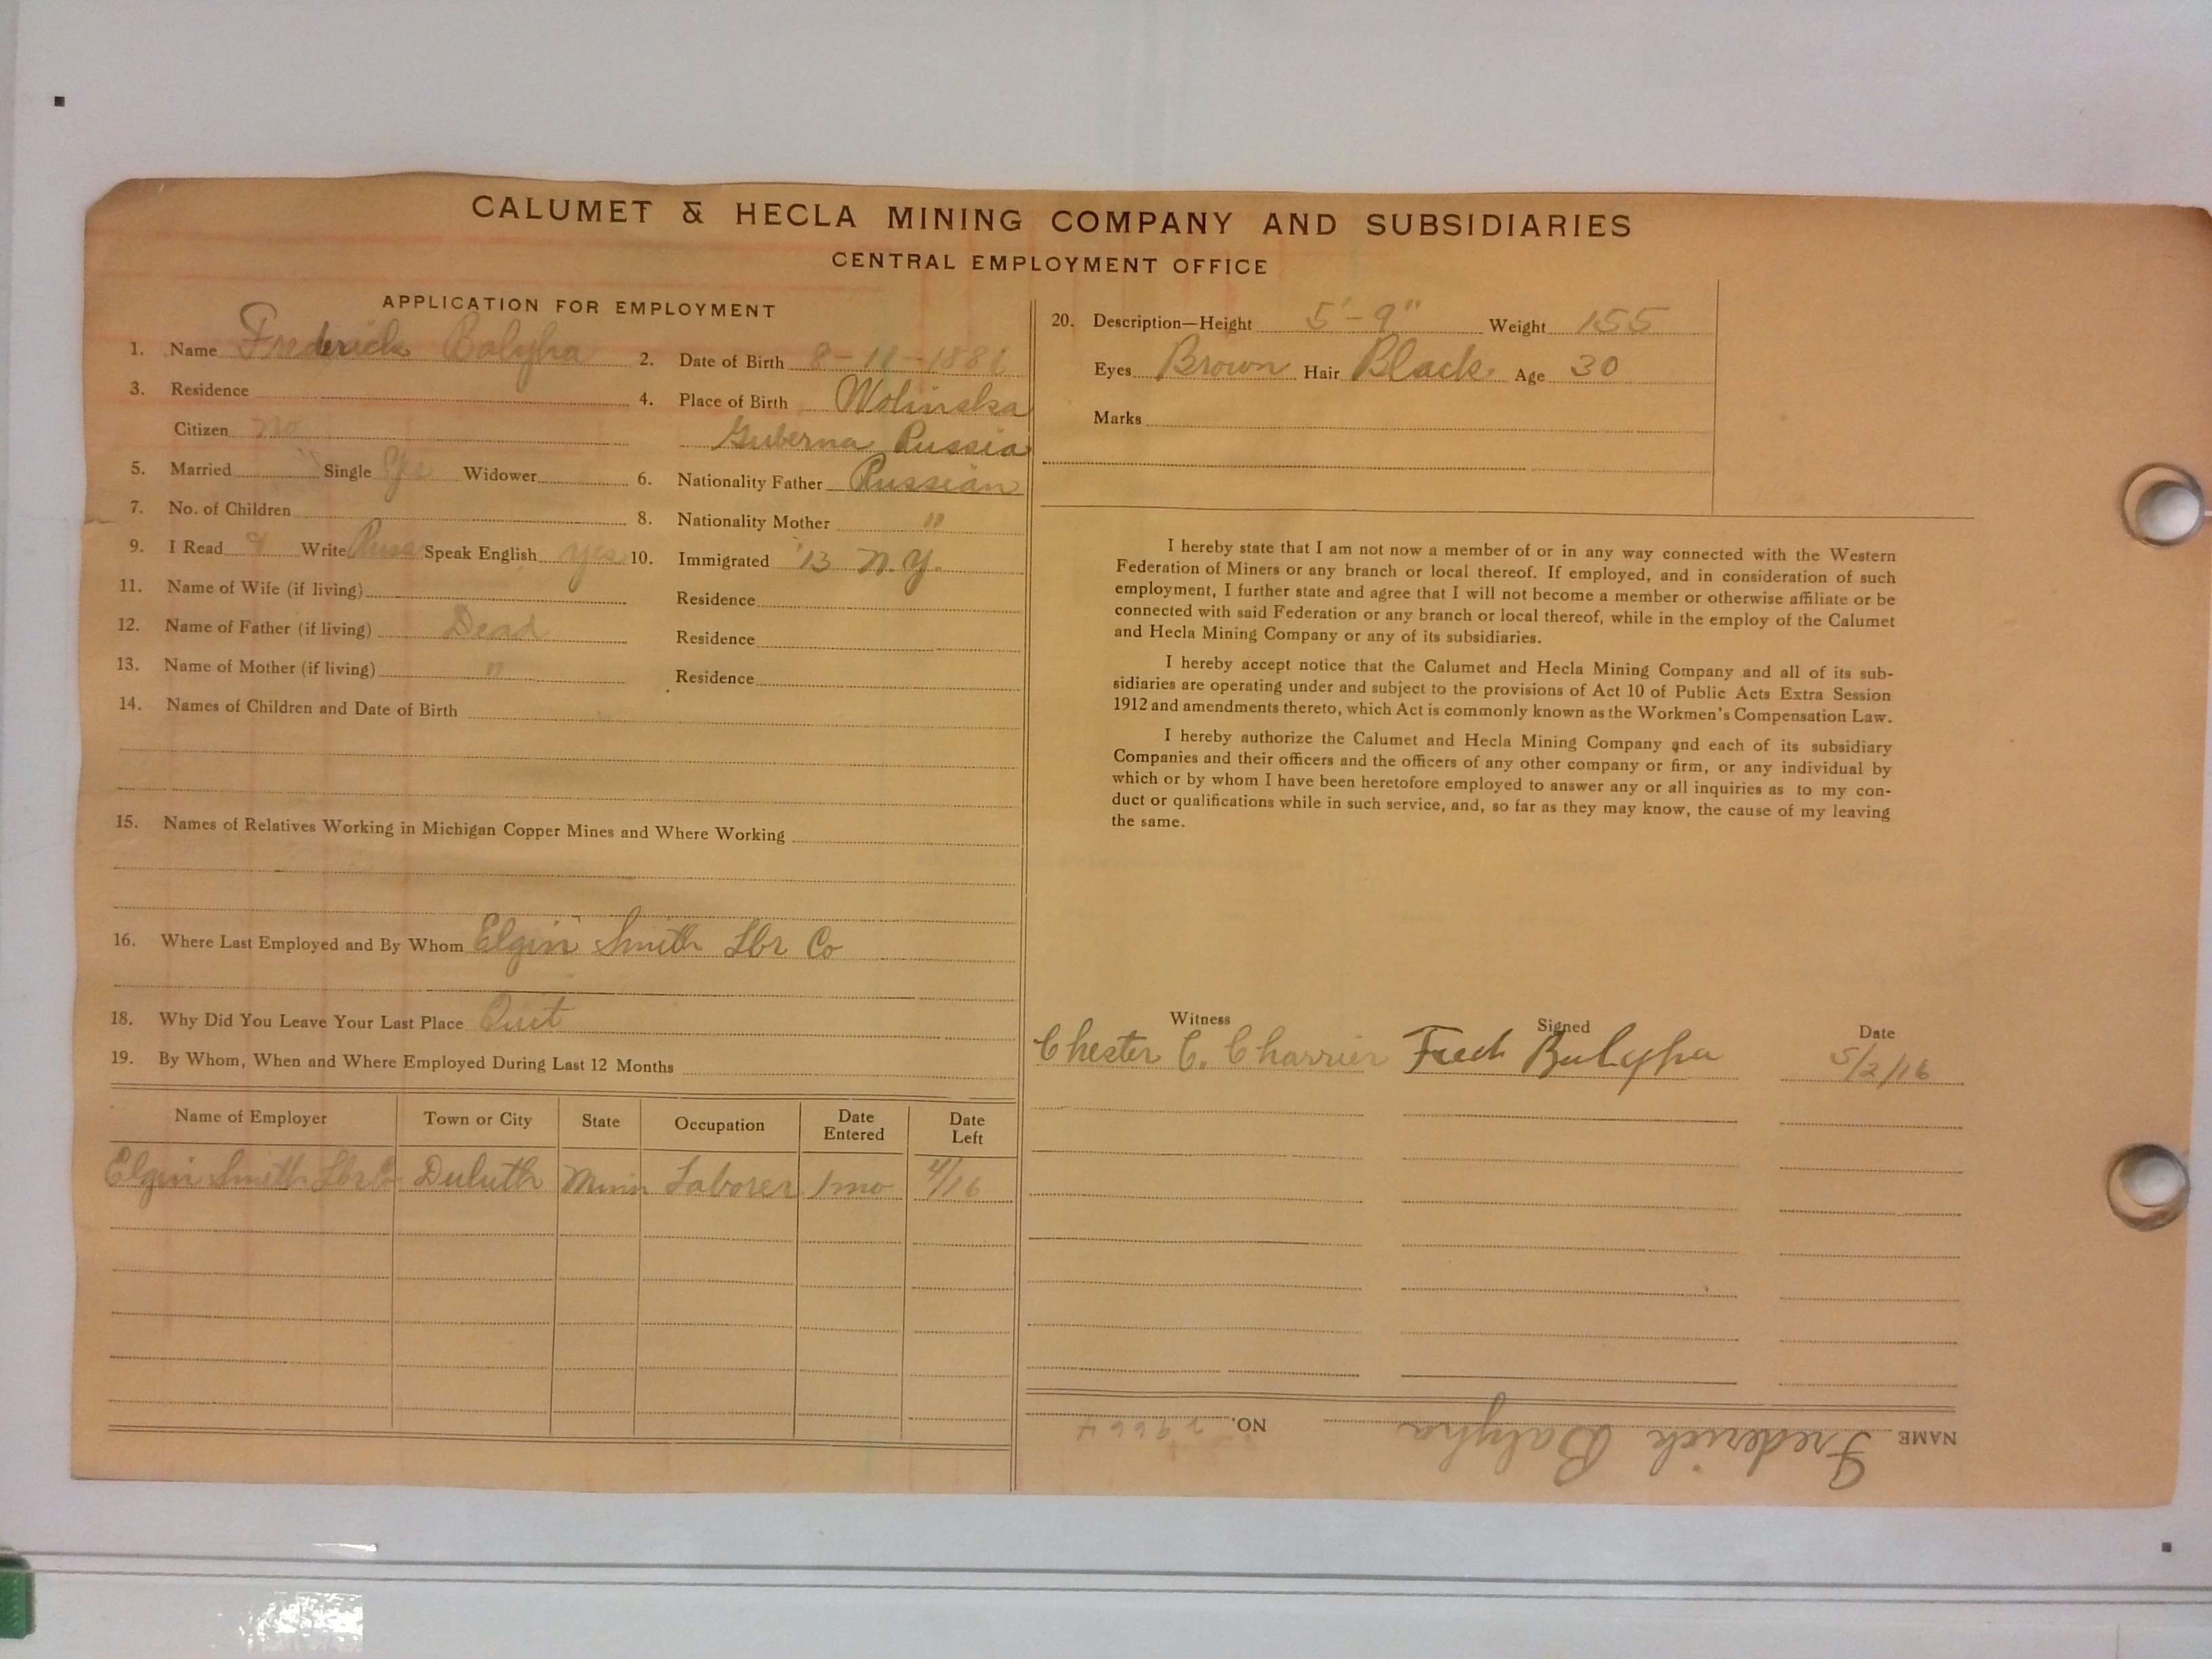 CALUMET & HECLA MINING COMPANY AND SUBSIDIARIES
CENTRAL EMPLOYMENT OFFICE
APPLICATION FOR EMPLOYMENT
1. Name Frederick Balyha 2. Date of Birth 8-11-1886
3. Residence 4. Place of Birth Wolinska
Citizen no Guberna Russia
5. Married Single Yes Widower 6. Nationality Father Russian
7. No. of Children 8. Nationality Mother "
9. I Read & Write Russ Speak English yes 10. Immigrated '13 N.Y.
11. Name of Wife (if living) Residence
12. Name of Father (if living) Dead Residence
13. Name of Mother (if living) " Residence
14. Names of Children and Date of Birth
15. Names of Relatives Working in Michigan Copper Mines and Where Working
16. Where Last Employed and By Whom Elgin Smith Lbr Co
18. Why Did You Leave Your Last Place Quit
19. By Whom, When and Where Employed During Last 12 Months
Name of Employer Town or City State Occupation Date Entered Date Left
Elgin Smith Lbr Co Duluth Minn Laborer 1 mo 4/16
20. Description—Height 5'-9" Weight 155
Eyes Brown Hair Black Age 30
Marks
I hereby state that I am not now a member of or in any way connected with the Western
Federation of Miners or any branch or local thereof. If employed, and in consideration of such
employment, I further state and agree that I will not become a member or otherwise affiliate or be
connected with said Federation or any branch or local thereof, while in the employ of the Calumet
and Hecla Mining Company or any of its subsidiaries.
I hereby accept notice that the Calumet and Hecla Mining Company and all of its sub-
sidiaries are operating under and subject to the provisions of Act 10 of Public Acts Extra Session
1912 and amendments thereto, which Act is commonly known as the Workmen's Compensation Law.
I hereby authorize the Calumet and Hecla Mining Company and each of its subsidiary
Companies and their officers and the officers of any other company or firm, or any individual by
which or by whom I have been heretofore employed to answer any or all inquiries as to my con-
duct or qualifications while in such service, and, so far as they may know, the cause of my leaving
the same.
Witness Signed Date
Chester C. Charrier Fred Bulyha 5/2/16
NAME Frederick Balyha NO. 29664